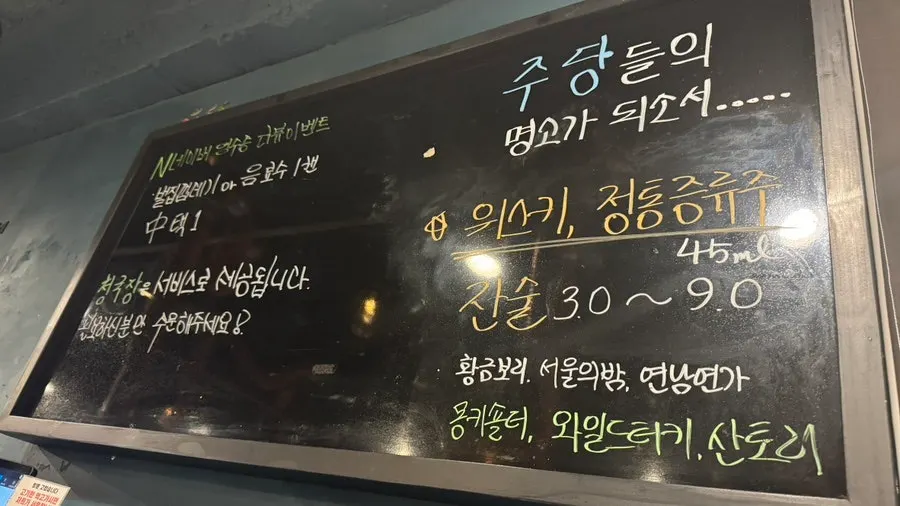 N네이버 영수증 리뷰이벤트
벌집껍데기 or 음료수 1캔
中 택1
청국장은 서비스로 제공됩니다.
원하시는분만 주문해주세요!
주당들의
명소가 되소서.....
위스키, 정통증류주
45ml
잔술 3.0 ~ 9.0
황금보리. 서울의밤, 연남연가
몽키숄더, 와일드터키, 산토리